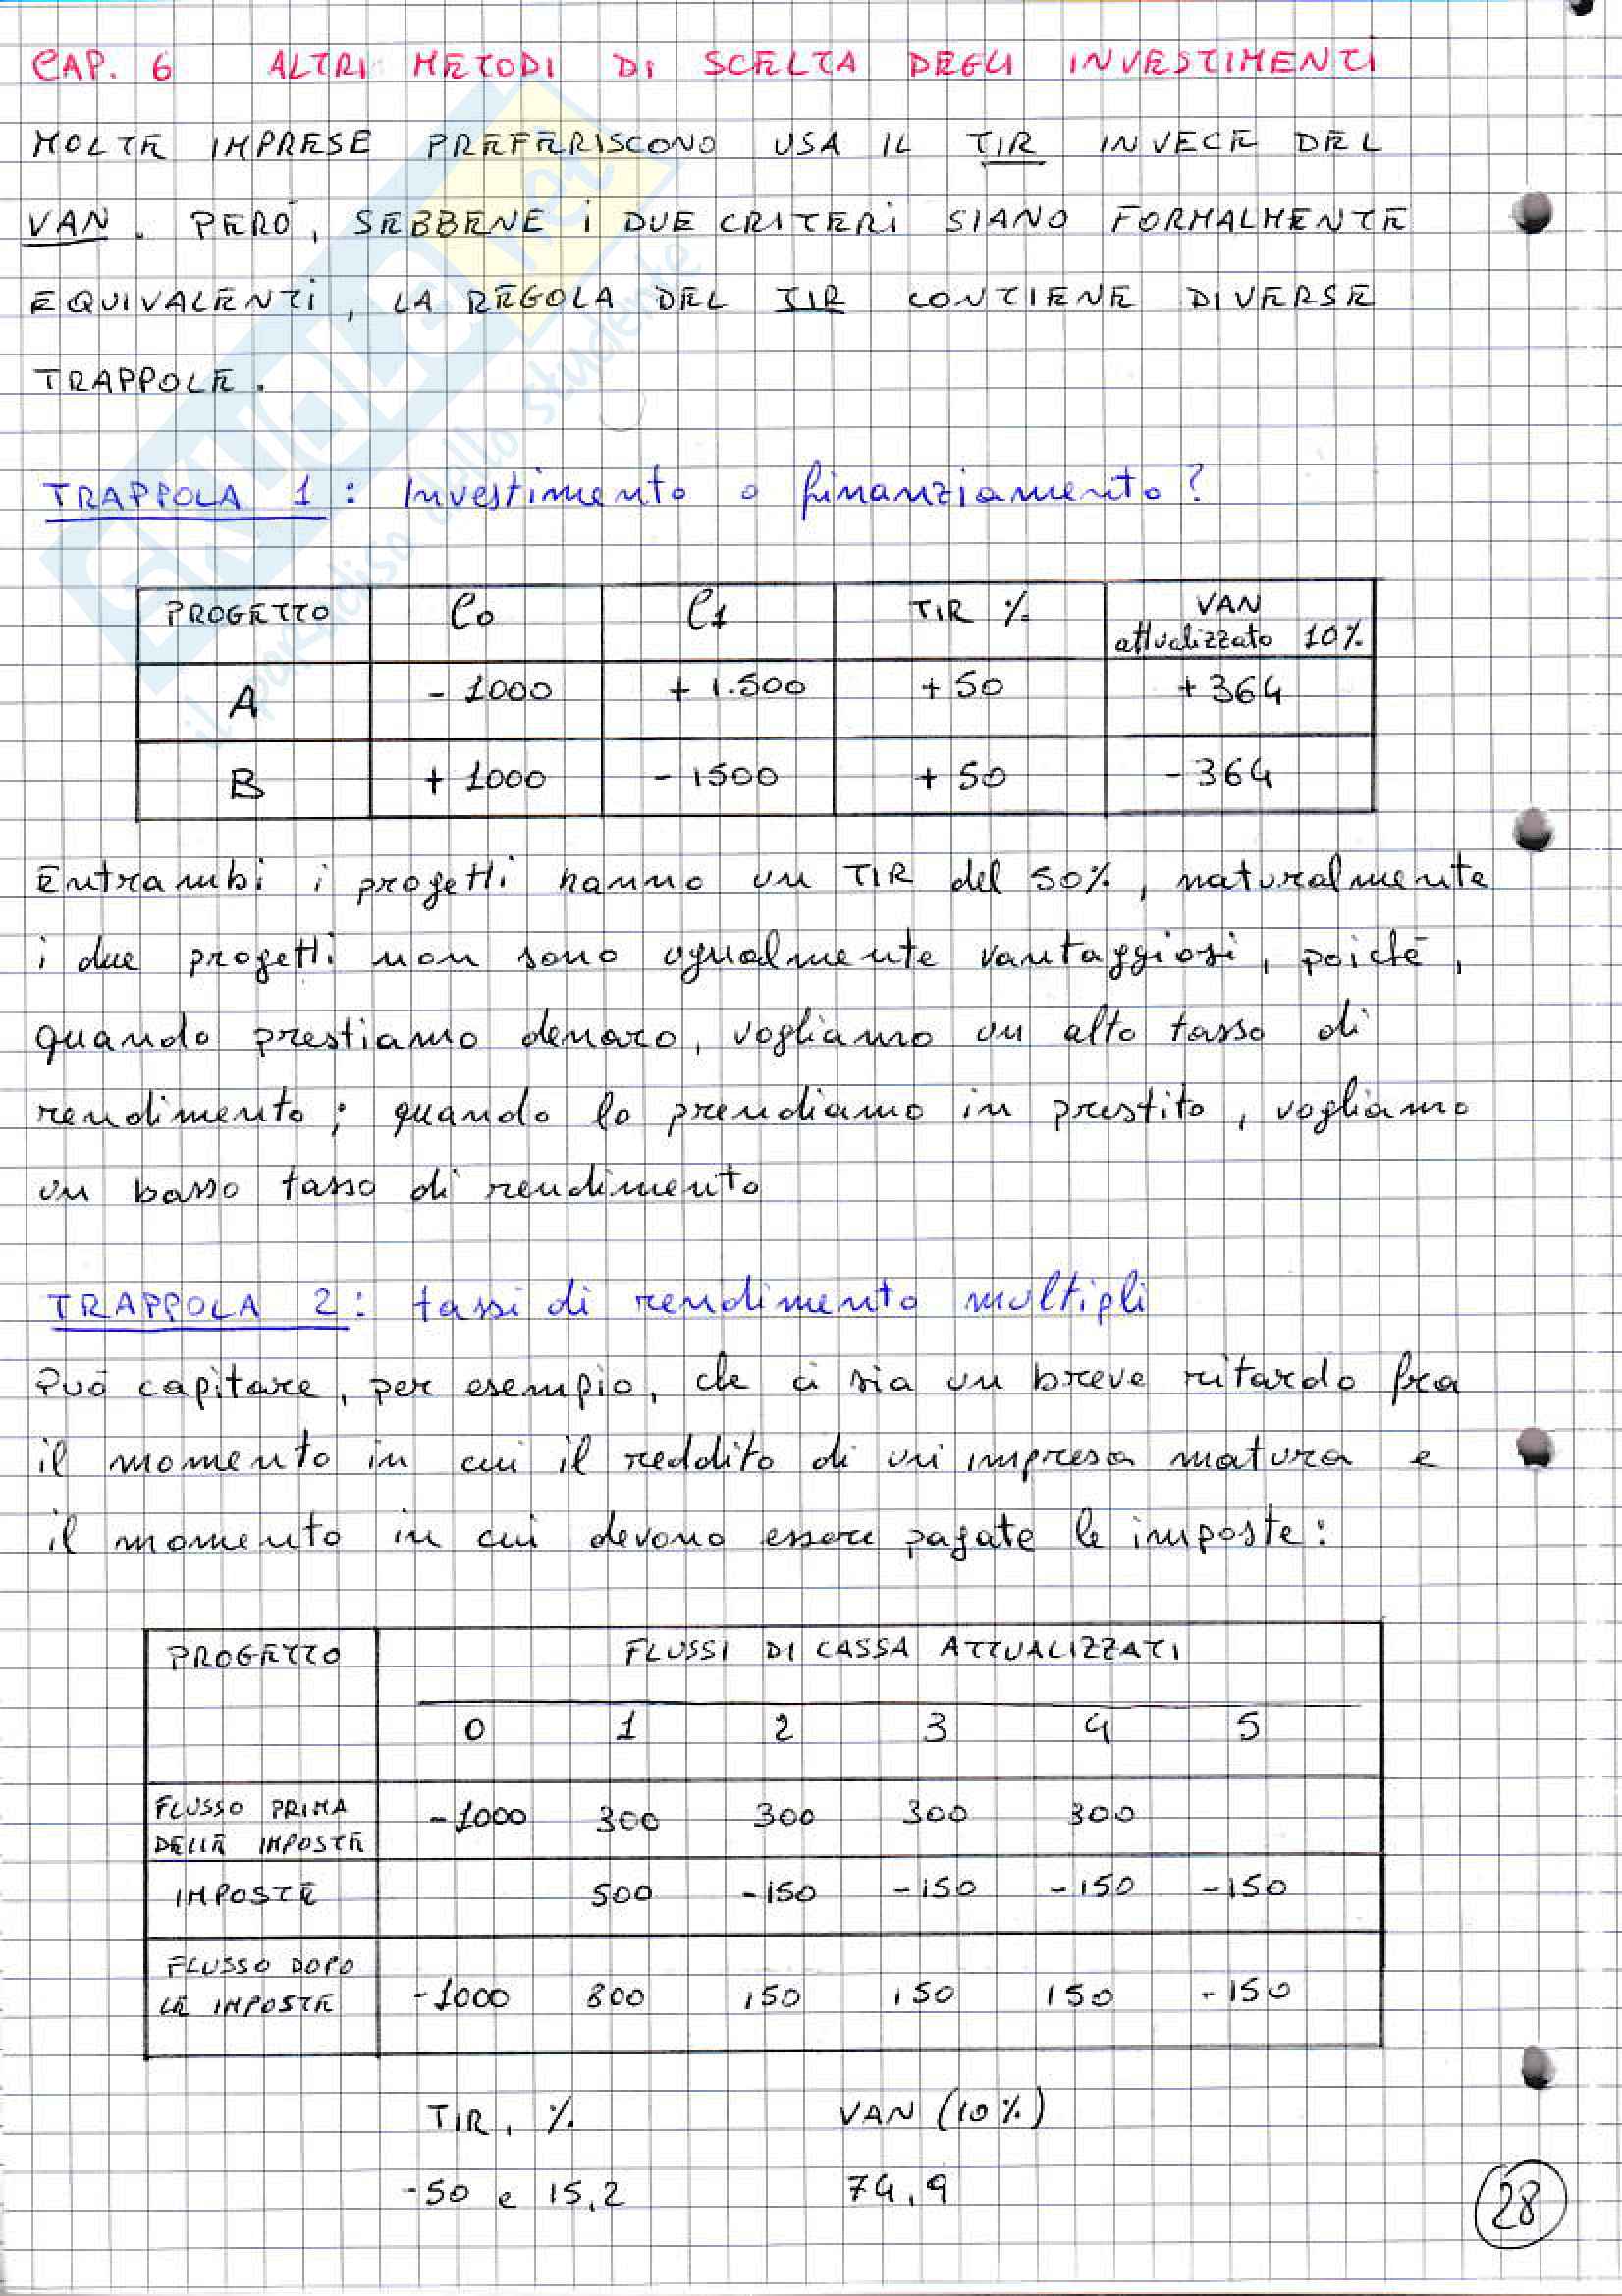 CAP. 6 ALTRI METODI DI SCELTA DEGLI INVESTIMENTI
MOLTE IMPRESE PREFERISCONO USA IL TIR INVECE DEL
VAN. PERÒ, SEBBENE i DUE CRITERI SIANO FORMALMENTE
EQUIVALENTI, LA REGOLA DEL TIR CONTIENE DIVERSE
TRAPPOLE.
TRAPPOLA 1: Investimento o finanziamento?
PROGETTO C0 C1 TIR % VAN attualizzato 10%
A - 1000 + 1.500 + 50 + 364
B + 1000 - 1500 + 50 - 364
Entrambi i progetti hanno un TIR del 50%, naturalmente
i due progetti non sono ugualmente vantaggiosi, poiché,
quando prestiamo denaro, vogliamo un alto tasso di
rendimento; quando lo prendiamo in prestito, vogliamo
un basso tasso di rendimento
TRAPPOLA 2: tassi di rendimento multipli
Può capitare, per esempio, che ci sia un breve ritardo fra
il momento in cui il reddito di un'impresa matura e
il momento in cui devono essere pagate le imposte:
PROGETTO FLUSSI DI CASSA ATTUALIZZATI
0 1 2 3 4 5
FLUSSO PRIMA DELLE IMPOSTE -1000 300 300 300 300
IMPOSTE 500 -150 -150 -150 -150
FLUSSO DOPO LE IMPOSTE -1000 800 150 150 150 -150
TIR, % VAN (10%)
-50 e 15,2 74,9
28
SKUOLA.net
il paradiso dello studente